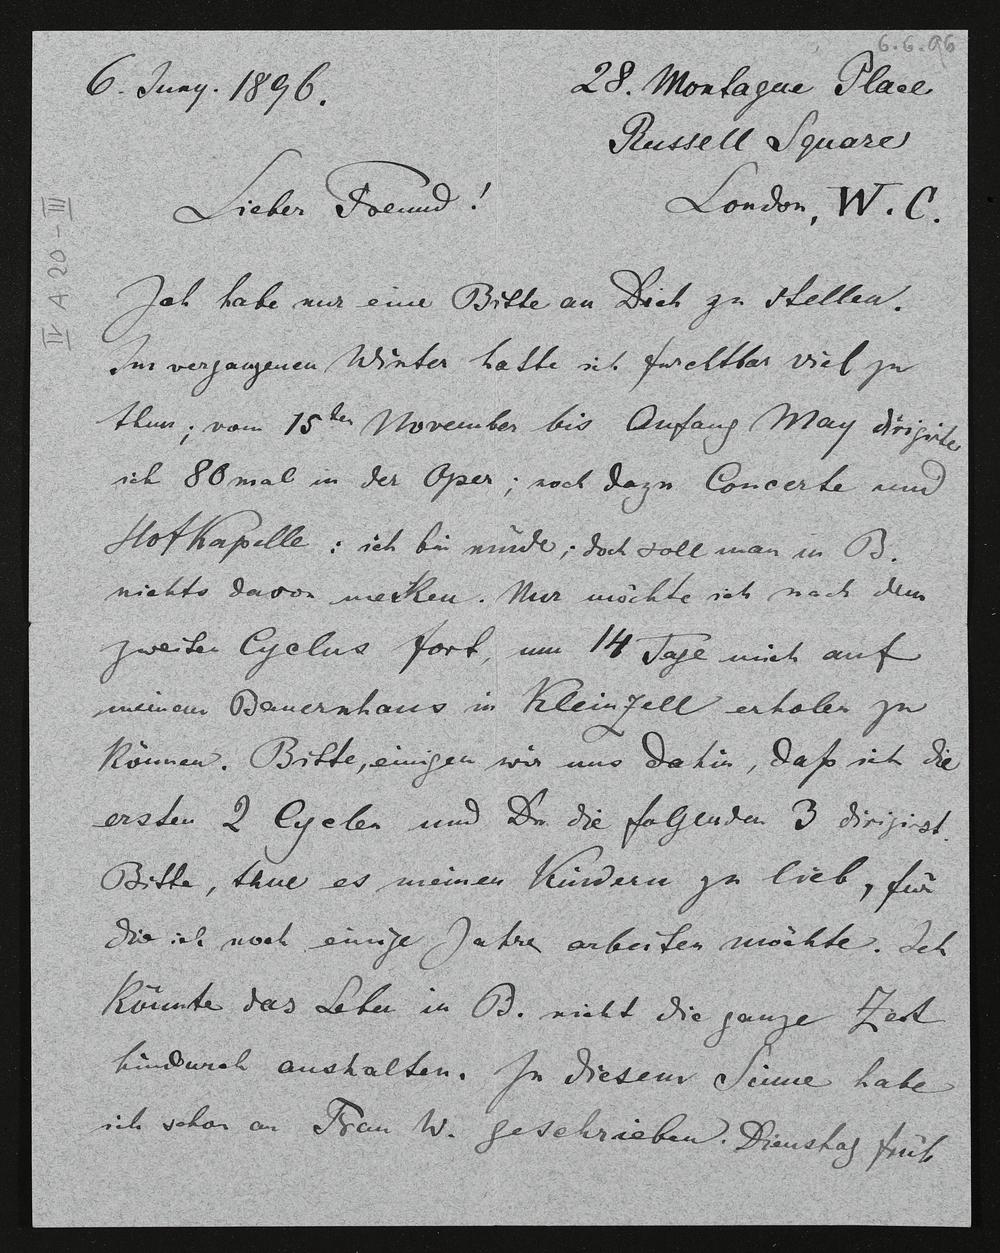 6.6.96
6. Juny. 1896.
28. Montague Place
Russell Square
London, W. C.
IV A 20-III
Lieber Freund!
Ich habe nur eine Bitte an Dich zu stellen.
Im vergangenen Winter hatte ich furchtbar viel zu
thun; vom 15ten November bis Anfang May dirigirte
ich 80 mal in der Oper; noch dazu Concerte und
Hofkapelle: ich bin müde; doch soll man in B.
nichts davon merken. Nur möchte ich nach dem
zweiten Cyclus fort, um 14 Tage mich auf
meinem Bauernhaus in Kleinzell erholen zu
können. Bitte, einigen wir uns dahin, daß ich die
ersten 2 Cyclen und Du die folgenden 3 dirigirst.
Bitte, thue es meinen Kindern zu lieb, für
die ich noch einige Jahre arbeiten möchte. Ich
könnte das Leben in B. nicht die ganze Zeit
hindurch aushalten. In diesem Sinne habe
ich schon an Frau W. geschrieben. Dienstag früh